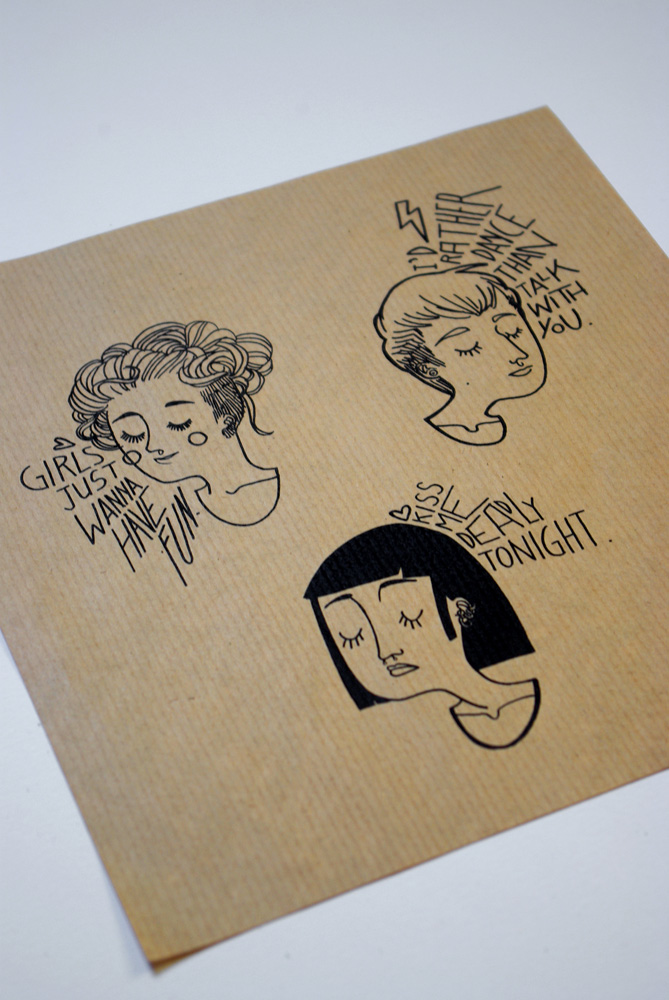 I'D
RATHER
DANCE
THAN
TALK
WITH
YOU.
GIRLS
JUST
WANNA
HAVE
FUN.
KISS
ME
DEADLY
TONIGHT.